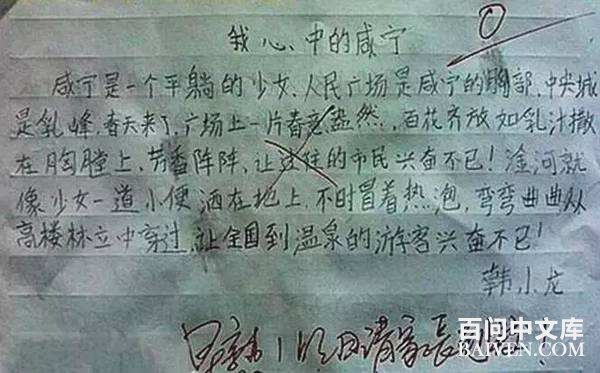 我心中的咸宁
咸宁是一个平躺的少女、人民广场是咸宁的胸部,中央城
是乳峰,春天来了,广场上一片春意盎然,百花齐放如乳汁撒
在胸膛上,芳香阵阵,让过往的市民兴奋不已!淦河就
像少女一道小便洒在地上,不时冒着热泡,弯弯曲曲从
高楼林立中穿过,让全国到温泉的游客兴奋不已!
韩小龙
明日请家长
百问中文库
BAIVEN.COM